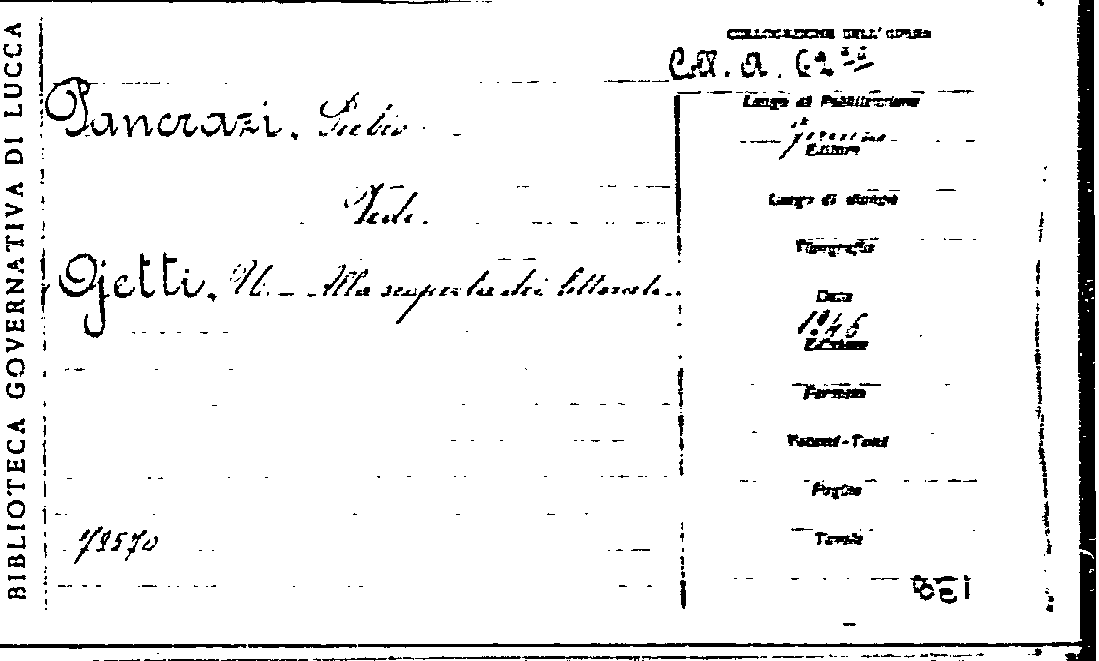 BIBLIOTECA GOVERNATIVA DI LUCCA
COLLOCAZIONE DELL'OPERA
Coll. A.
Pancrazi, Pietro
Vedi
Ojetti, U. - Alla scoperta dei letterati.
Luogo di Pubblicazione
Editore
Luogo di stampa
Tipografia
Data
1946
Edizione
Formato
Volumi-Tomi
Pagine
Tavole